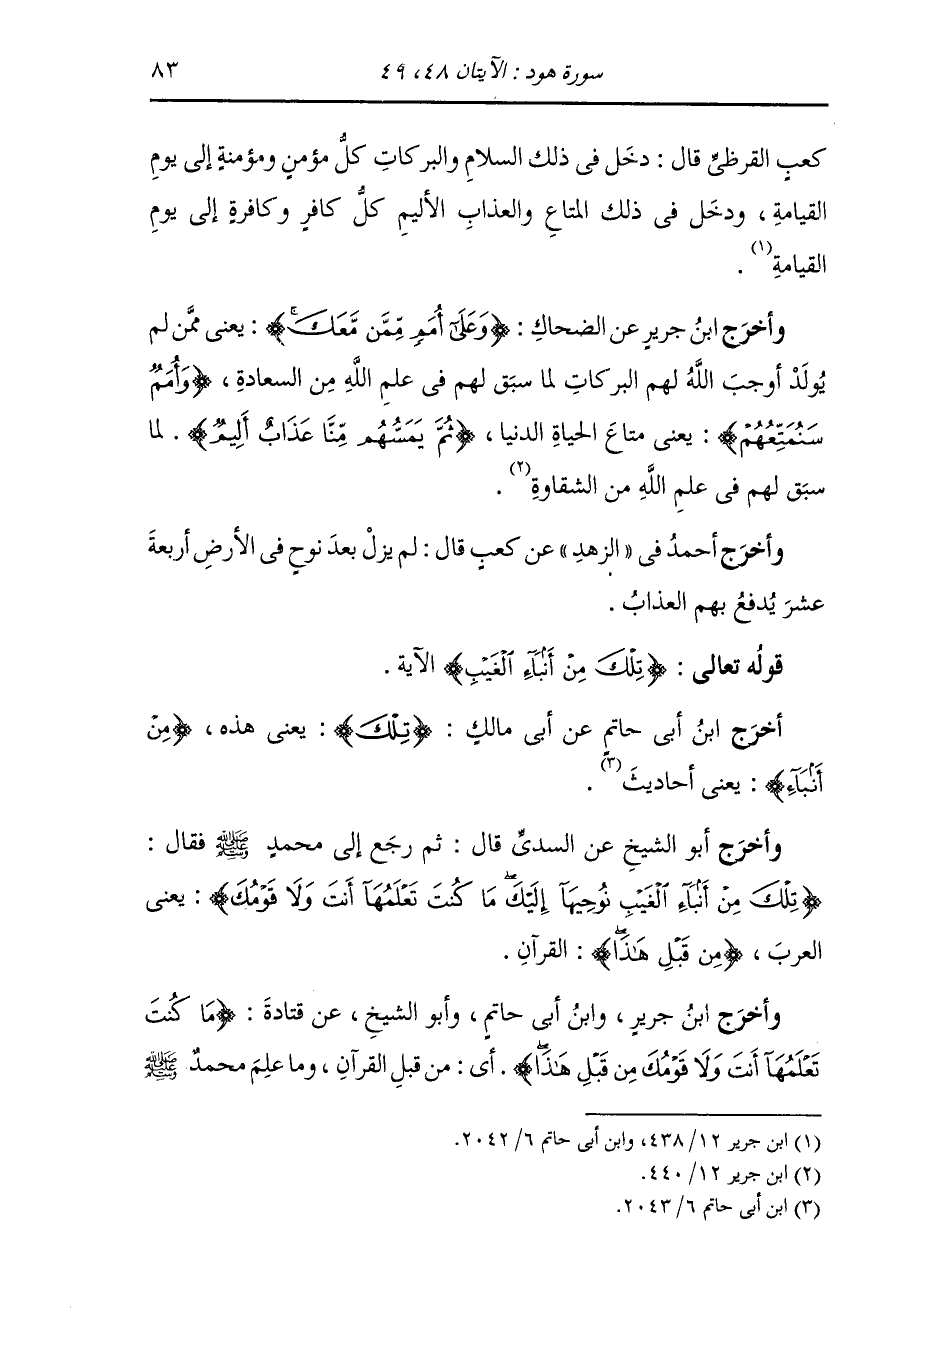 سورة هود : الآيتان ٤٨، ٤٩ ٨٣
كعبٍ القرظىِّ قال : دخَل فى ذلك السلامِ والبركاتِ كلُّ مؤمنٍ ومؤمنةٍ إلى يومِ
القيامةِ ، ودخَل فى ذلك المتاعِ والعذابِ الأليمِ كلُّ كافرٍ وكافرةٍ إلى يومِ
القيامةِ(١) .
وأخرَج ابنُ جريرٍ عن الضحاكِ : ﴿وَعَلَىٰٓ أُمَمٍ مِّمَّن مَّعَكَۚ﴾ : يعنى ممَّن لم
يُولَدْ أوجبَ اللَّهُ لهم البركاتِ لما سبَق لهم فى علمِ اللَّهِ مِن السعادةِ ، ﴿وَأُمَمٌ
سَنُمَتِّعُهُمْ﴾ : يعنى متاعَ الحياةِ الدنيا ، ﴿ثُمَّ يَمَسُّهُم مِّنَّا عَذَابٌ أَلِيمٌ﴾ . لما
سبَق لهم فى علمِ اللَّهِ من الشقاوةِ(٢) .
وأخرَج أحمدُ فى « الزهدِ » عن كعبٍ قال : لم يزلْ بعدَ نوحٍ فى الأرضِ أربعةَ
عشرَ يُدفعُ بهم العذابُ .
قولُه تعالى : ﴿تِلْكَ مِنْ أَنۢبَآءِ ٱلْغَيْبِ﴾ الآية .
أخرَج ابنُ أبى حاتمٍ عن أبى مالكٍ : ﴿تِلْكَ﴾ : يعنى هذه ، ﴿مِنْ
أَنۢبَآءِ﴾ : يعنى أحاديثَ(٣) .
وأخرَج أبو الشيخِ عن السدىِّ قال : ثم رجَع إلى محمدٍ ﷺ فقال :
﴿تِلْكَ مِنْ أَنۢبَآءِ ٱلْغَيْبِ نُوحِيهَآ إِلَيْكَۖ مَا كُنتَ تَعْلَمُهَآ أَنتَ وَلَا قَوْمُكَ﴾ : يعنى
العربَ ، ﴿مِن قَبْلِ هَٰذَاۖ﴾ : القرآنِ .
وأخرَج ابنُ جريرٍ ، وابنُ أبى حاتمٍ ، وأبو الشيخِ ، عن قتادةَ : ﴿مَا كُنتَ
تَعْلَمُهَآ أَنتَ وَلَا قَوْمُكَ مِن قَبْلِ هَٰذَاۖ﴾ . أى : من قبلِ القرآنِ ، وما علِمَ محمدٌ ﷺ
(١) ابن جرير ١٢/ ٤٣٨، وابن أبى حاتم ٦/ ٢٠٤٢.
(٢) ابن جرير ١٢/ ٤٤٠.
(٣) ابن أبى حاتم ٦/ ٢٠٤٣.